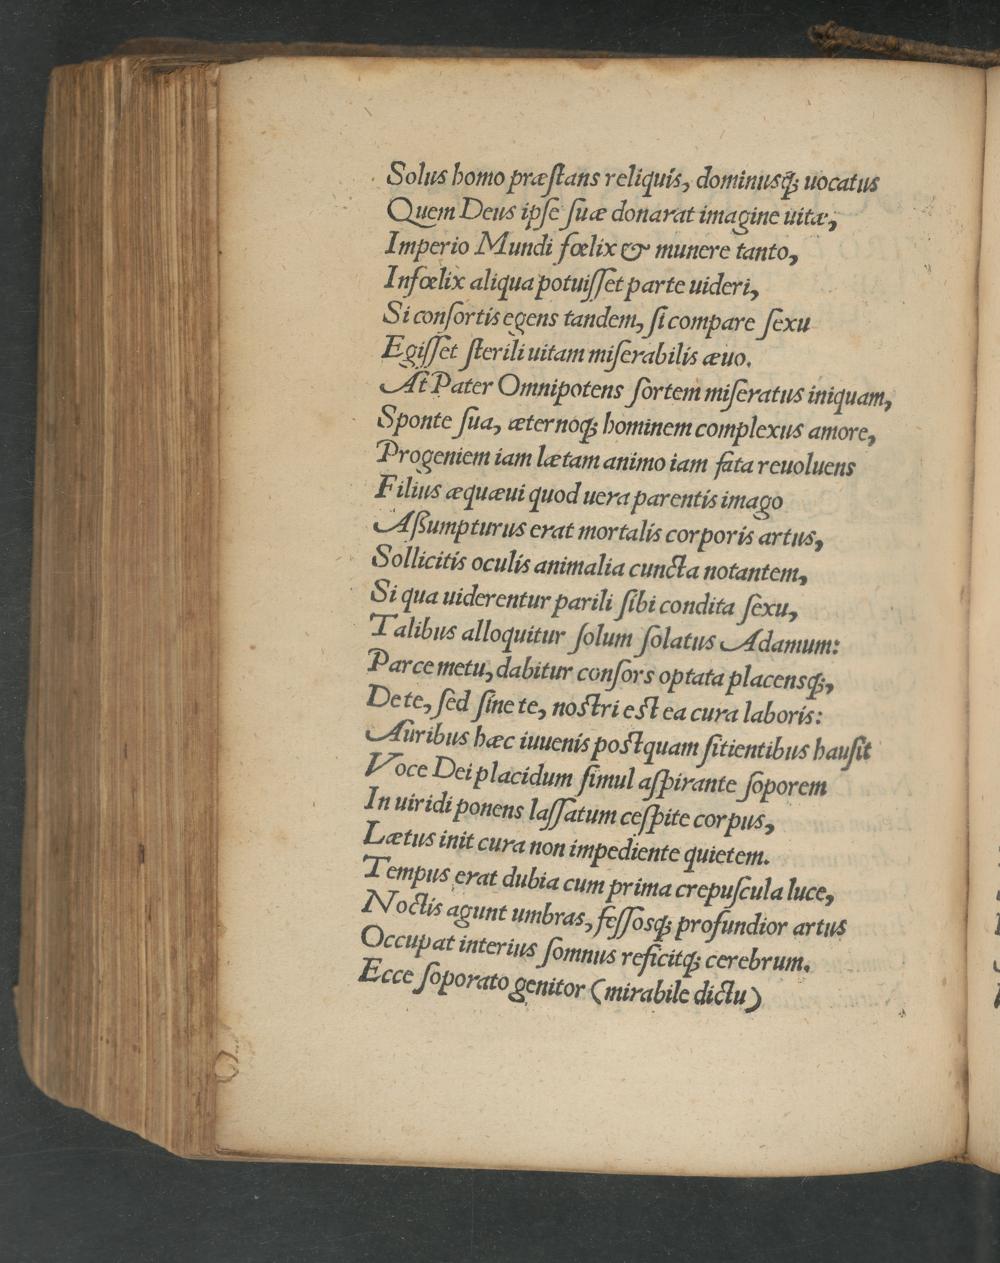 Solus homo præſtans reliquis, dominusq́; uocatus
Quem Deus ipſe ſuæ donarat imagine uitæ,
Imperio Mundi fœlix & munere tanto,
Infœlix aliqua potuiſſet parte uideri,
Si conſortis egens tandem, ſi compare ſexu
Egiſſet ſterili uitam miſerabilis æuo.
At Pater Omnipotens ſortem miſeratus iniquam,
Sponte ſua, æternoq; hominem complexus amore,
Progeniem iam lætam animo iam fata reuoluens
Filius æquæui quod uera parentis imago
Aßumpturus erat mortalis corporis artus,
Sollicitis oculis animalia cuncta notantem,
Si qua uiderentur parili ſibi condita ſexu,
Talibus alloquitur ſolum ſolatus Adamum:
Parce metu, dabitur conſors optata placensq;,
De te, ſed ſine te, noſtri eſt ea cura laboris:
Auribus hæc iuuenis poſtquam ſitientibus hauſit
Voce Dei placidum ſimul aſpirante ſoporem
In uiridi ponens laſſatum ceſpite corpus,
Lætus init cura non impediente quietem.
Tempus erat dubia cum prima crepuſcula luce,
Noctis agunt umbras, feſſosq; profundior artus
Occupat interius ſomnus reficitq; cerebrum.
Ecce ſoporato genitor (mirabile dictu)